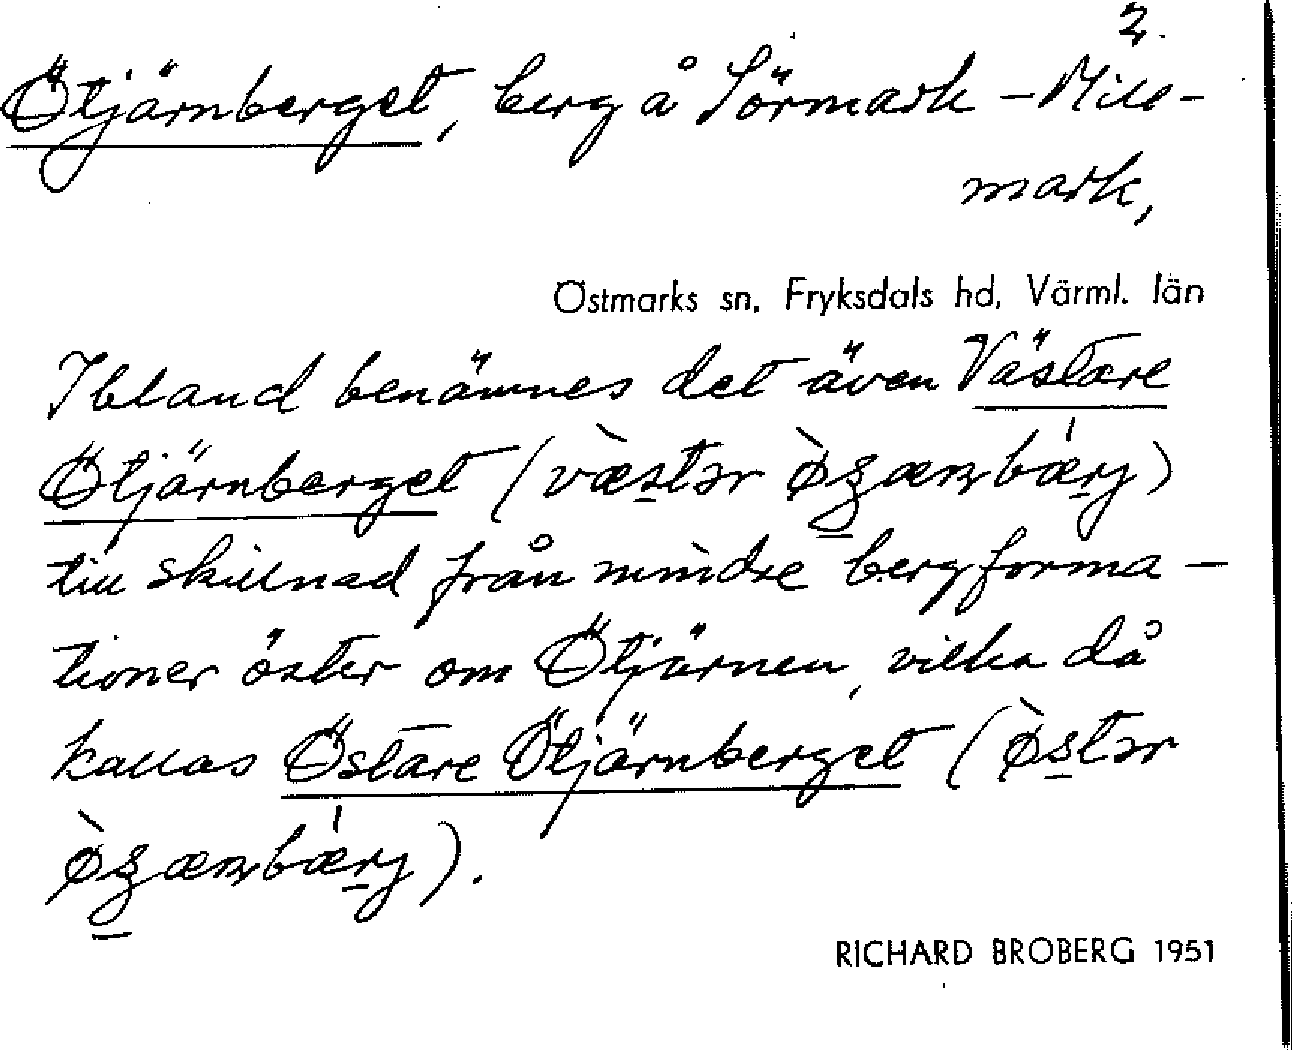 2.
Ötjärnberget, berg å Sörmark – Mill-
mark,
Östmarks sn, Fryksdals hd, Värml. län
Ibland benämnes det även Västare
Ötjärnberget (væstər
till skillnad från mindre bergforma-
tioner öster om Ötjärnen, vilka då
kallas Östare Ötjärnberget (østər
RICHARD BROBERG 1951